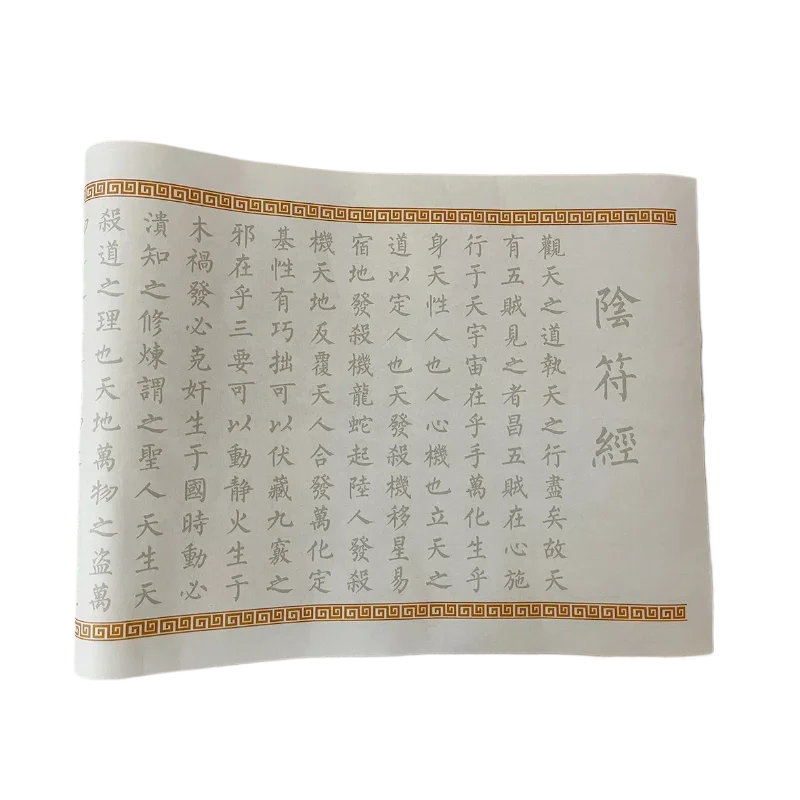 陰符經
觀天之道執天之行盡矣故天
有五賊見之者昌五賊在心施
行于天宇宙在乎手萬化生乎
身天性人也人心機也立天之
道以定人也天發殺機移星易
宿地發殺機龍蛇起陸人發殺
機天地反覆天人合發萬化定
基性有巧拙可以伏藏九竅之
邪在乎三要可以動靜火生于
木禍發必克奸生于國時動必
潰知之修煉謂之聖人天生天
殺道之理也天地萬物之盜萬